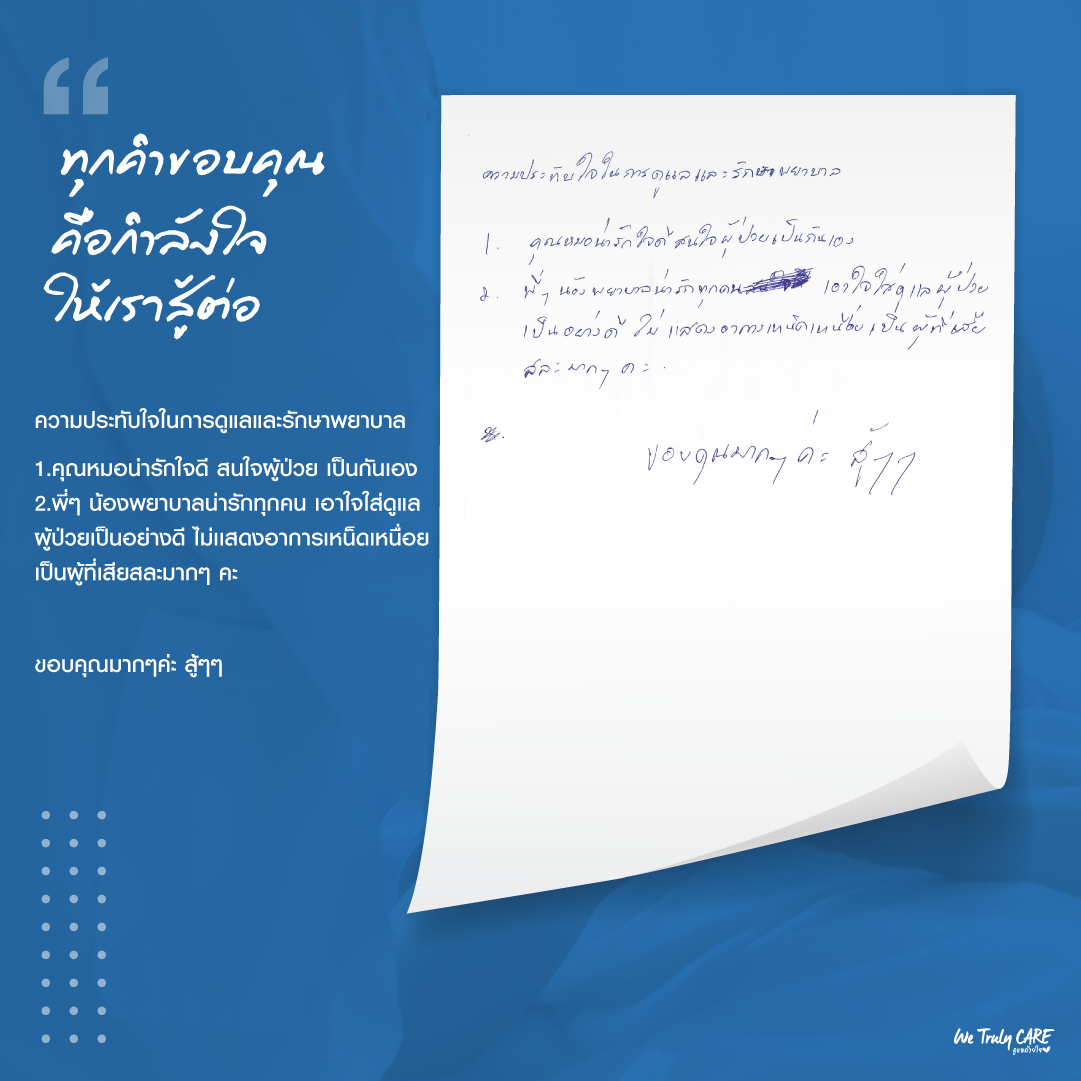 ทุกคำขอบคุณ
คือกำลังใจ
ให้เราสู้ต่อ
ความประทับใจในการดูแลและรักษาพยาบาล
1.คุณหมอน่ารักใจดี สนใจผู้ป่วย เป็นกันเอง
2.พี่ๆ น้องพยาบาลน่ารักทุกคน เอาใจใส่ดูแล
ผู้ป่วยเป็นอย่างดี ไม่แสดงอาการเหน็ดเหนื่อย
เป็นผู้ที่เสียสละมากๆ คะ
ขอบคุณมากๆค่ะ สู้ๆๆ
ความประทับใจในการดูแลและรักษาพยาบาล
1. คุณหมอน่ารักใจดี สนใจผู้ป่วยเป็นกันเอง
2. พี่ๆ น้องพยาบาลน่ารักทุกคน เอาใจใส่ดูแลผู้ป่วย
เป็นอย่างดี ไม่แสดงอาการเหน็ดเหนื่อย เป็นผู้ที่เสีย
สละมากๆ คะ.
ขอบคุณมากๆ ค่ะ สู้ๆๆ
We Truly CARE
ดูแลด้วยใจ